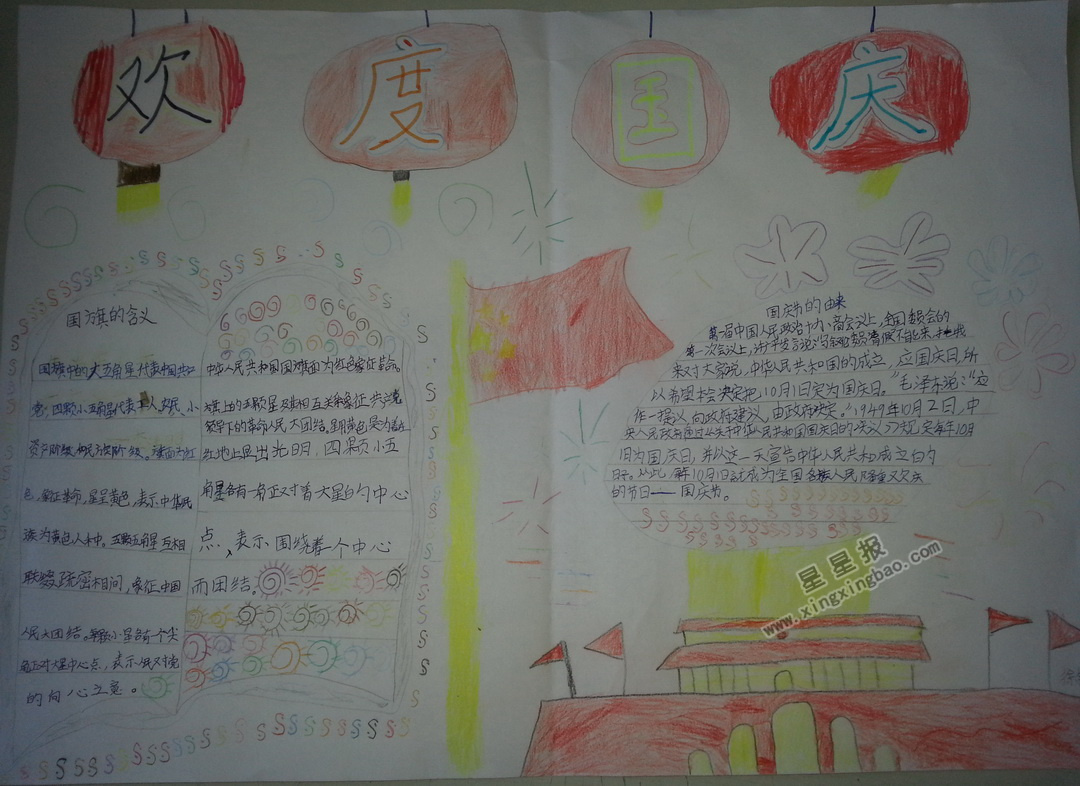 欢 度 国 庆
国旗的含义
国旗中的大五角星代表中国共
党,四颗小五角星代表工人、农民、小
资产阶级和民族资产阶级。旗面为红
色,象征革命,星呈黄色,表示中华民
族为黄色人种。五颗五角星互相
联缀、疏密相间,象征中国
人民大团结。每颗小星各有一个尖
角正对大星中心点,表示人民对党
的向心之意。
中华人民共和国国旗旗面为红色象征革命。
旗上的五颗星及其相互关系象征共产党
领导下的革命人民大团结。星用黄色是为着在
红地上显出光明,四颗小五
角星各有一角正对着大星的中心
点,表示围绕着一个中心
而团结。
国庆节的由来
第一次会议上,
来对大家说,中华人民共和国的成立,应国庆日,所
以希望本会决定把10月1日定为国庆日。"毛泽东说:"应
作一提议,向政府建议,由政府决定。"1949年10月2日,中
1日为国庆日,并以这一天宣告中华人民共和成立的为
日子。从此,解10月1日就成为全国各族人民隆重又欢庆
的节日——国庆节。
星星报
www.xingxingbao.com